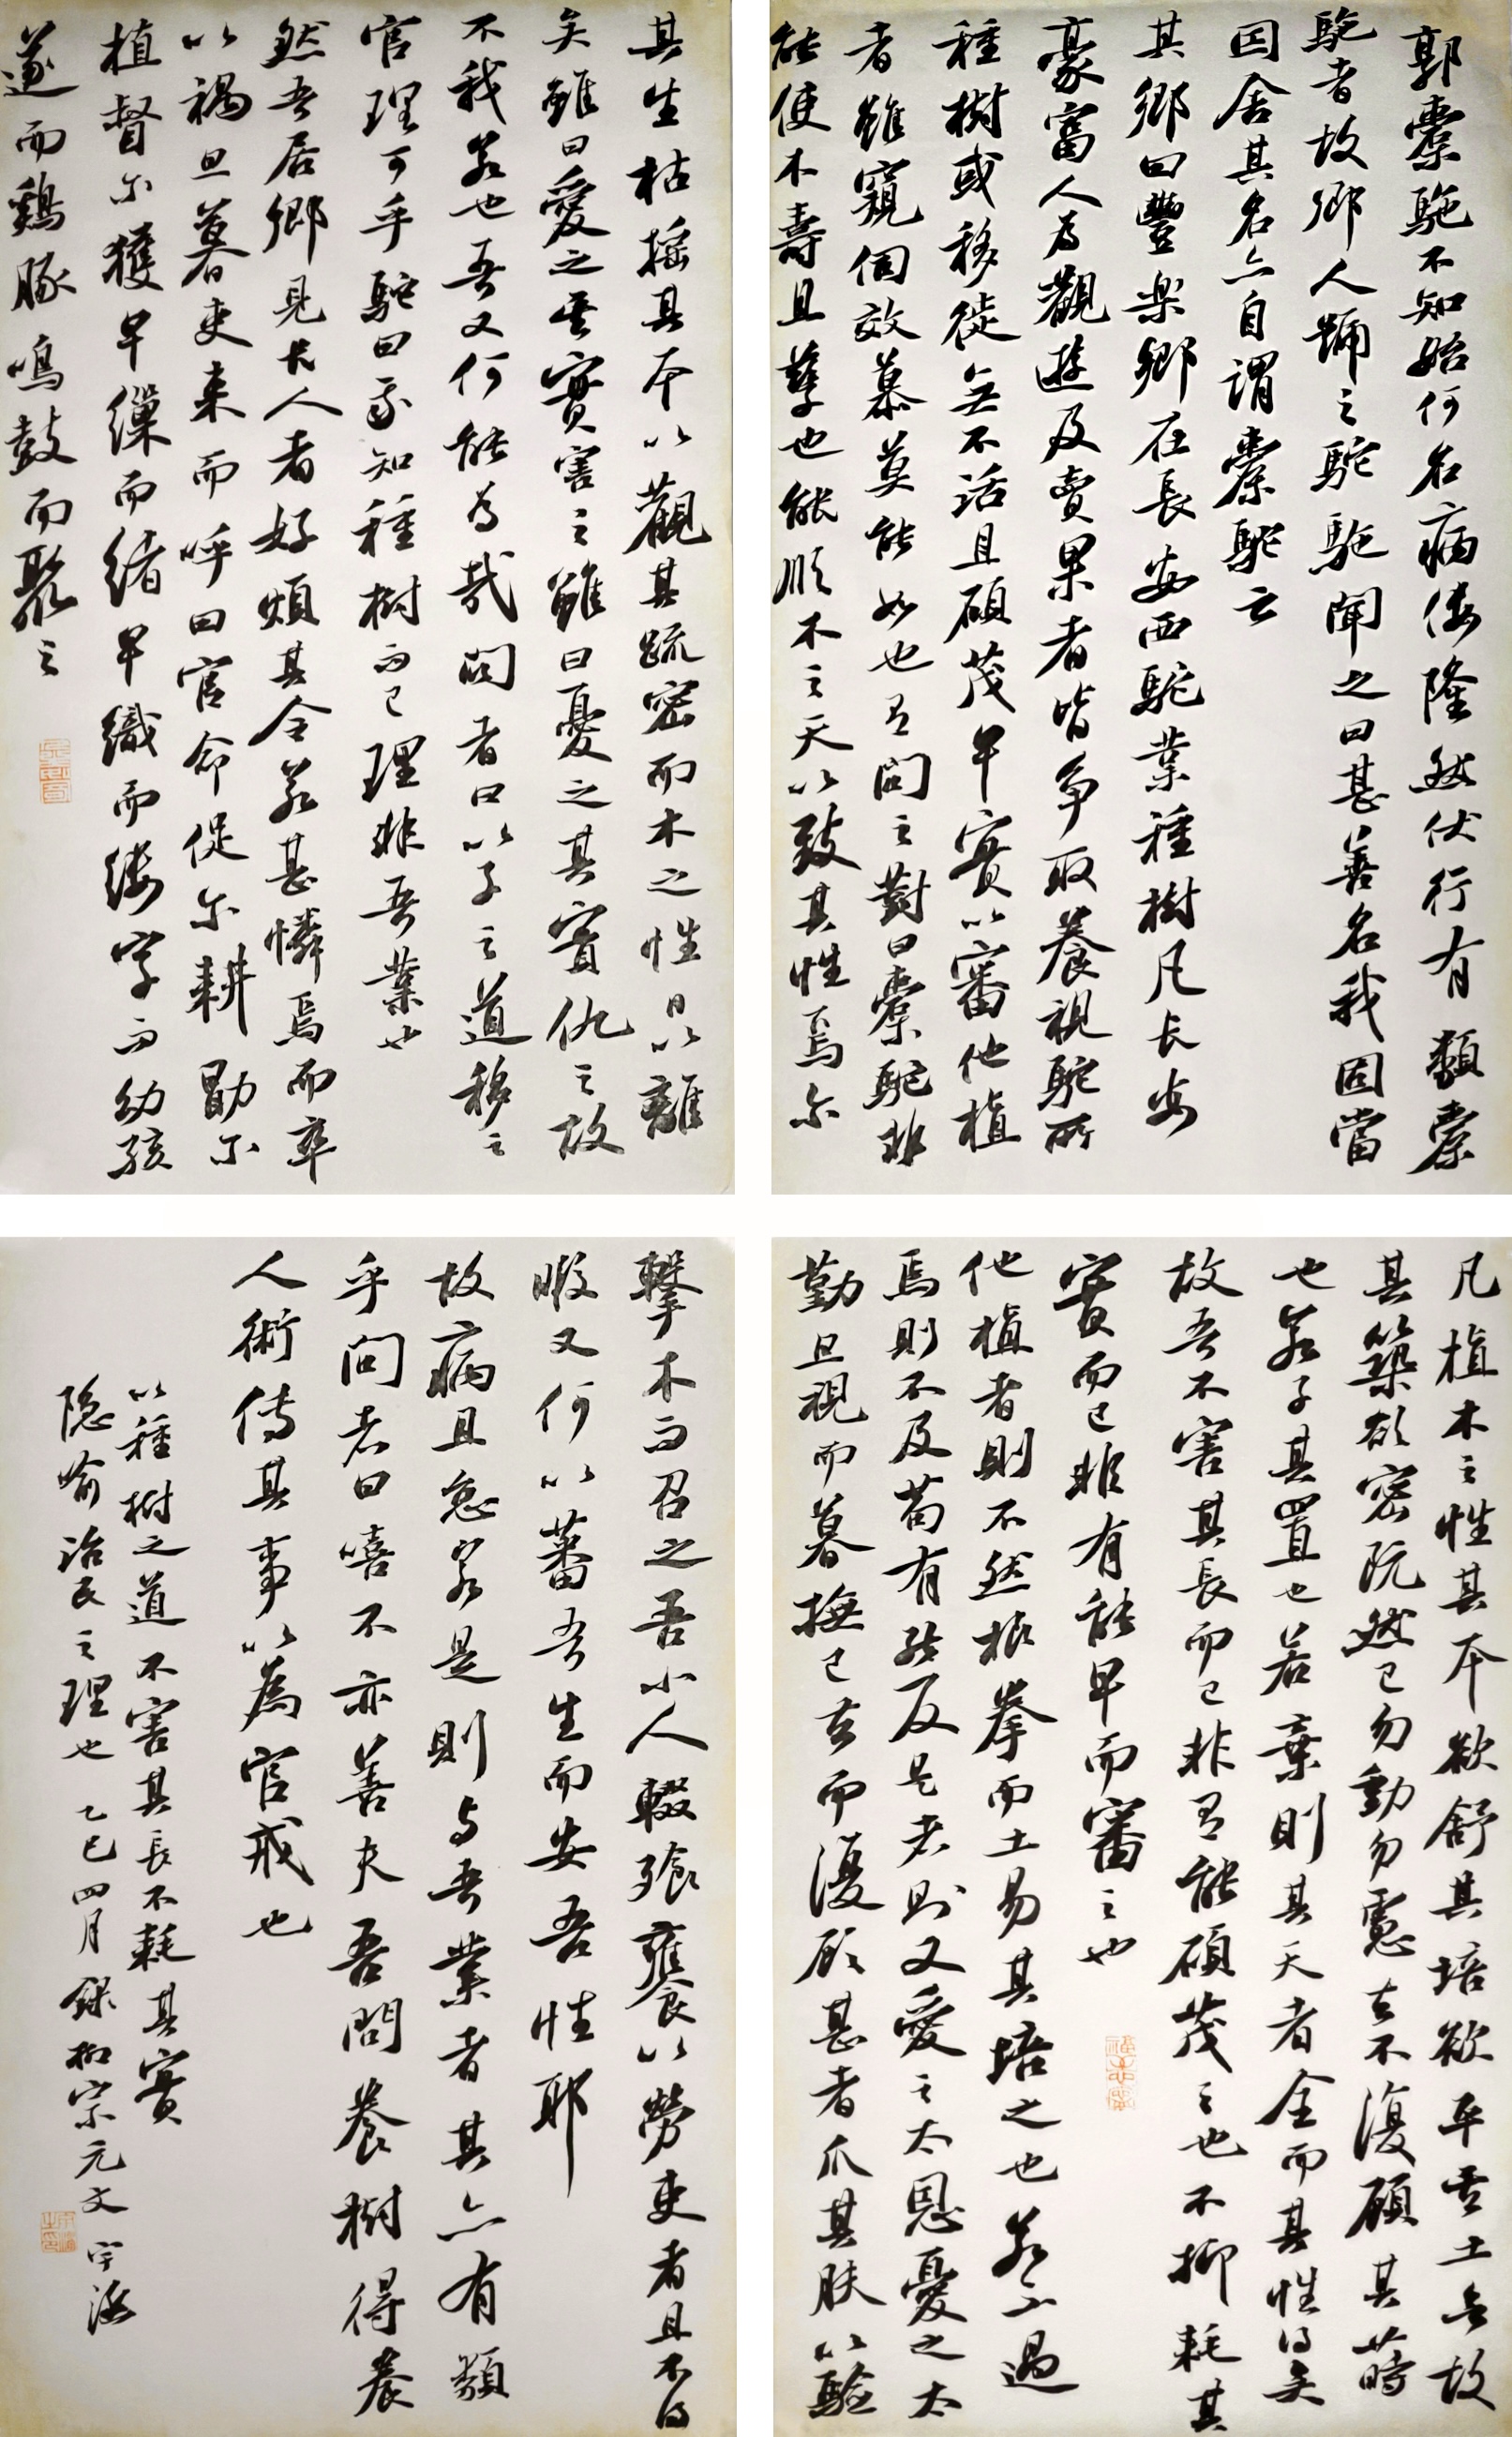 郭橐駝不知始何名病僂隆然伏行有類橐
駝者故鄉人號之駝駝聞之曰甚善名我固當
因舍其名亦自謂橐駝云
其鄉曰豐楽鄉在長安西駝業種樹凡長安
豪富人為觀遊及賣果者皆爭取養視駝所
種樹或移徙無不活且碩茂早實以審他植
者雖窺個效慕莫能如也有問之對曰橐駝非
能使木壽且孳也能順木之天以致其性焉尔
凡植木之性其本欲舒其培欲平其土無故
其築欲密既然已勿動勿慮去不復顧其蒔
也若子其置也若棄則其天者全而其性得矣
故吾不害其長而已非有能碩茂之也不抑耗其
實而已非有能早而審之也
他植者則不然根拳而土易其培之也若不過
焉則不及苟有能反是者則又愛之太恩憂之太
勤旦視而暮撫已去而復顧甚者爪其膚以驗
其生枯搖其本以觀其疏密而木之性日以離
矣雖曰愛之其實害之雖曰憂之其實仇之故
不我若也吾又何能為哉問者曰以子之道移之
官理可乎駝曰我知種樹而已理非吾業也
然吾居鄉見長人者好煩其令若甚憐焉而卒
以禍旦暮吏来而呼曰官命促尔耕勖尔
植督尔獲早繅而緒早織而縷字而幼孩
遂而鷄豚鳴鼓而聚之
擊木而召之吾小人輟飧饔以勞吏者且不得
暇又何以蕃吾生而安吾性耶
故病且怠若是則与吾業者其亦有類
乎問者曰嘻不亦善夫吾問養樹得養
人術傳其事以為官戒也
以種樹之道不害其長不耗其實
隐喻治民之理也 乙巳四月録柳宗元文 宇海